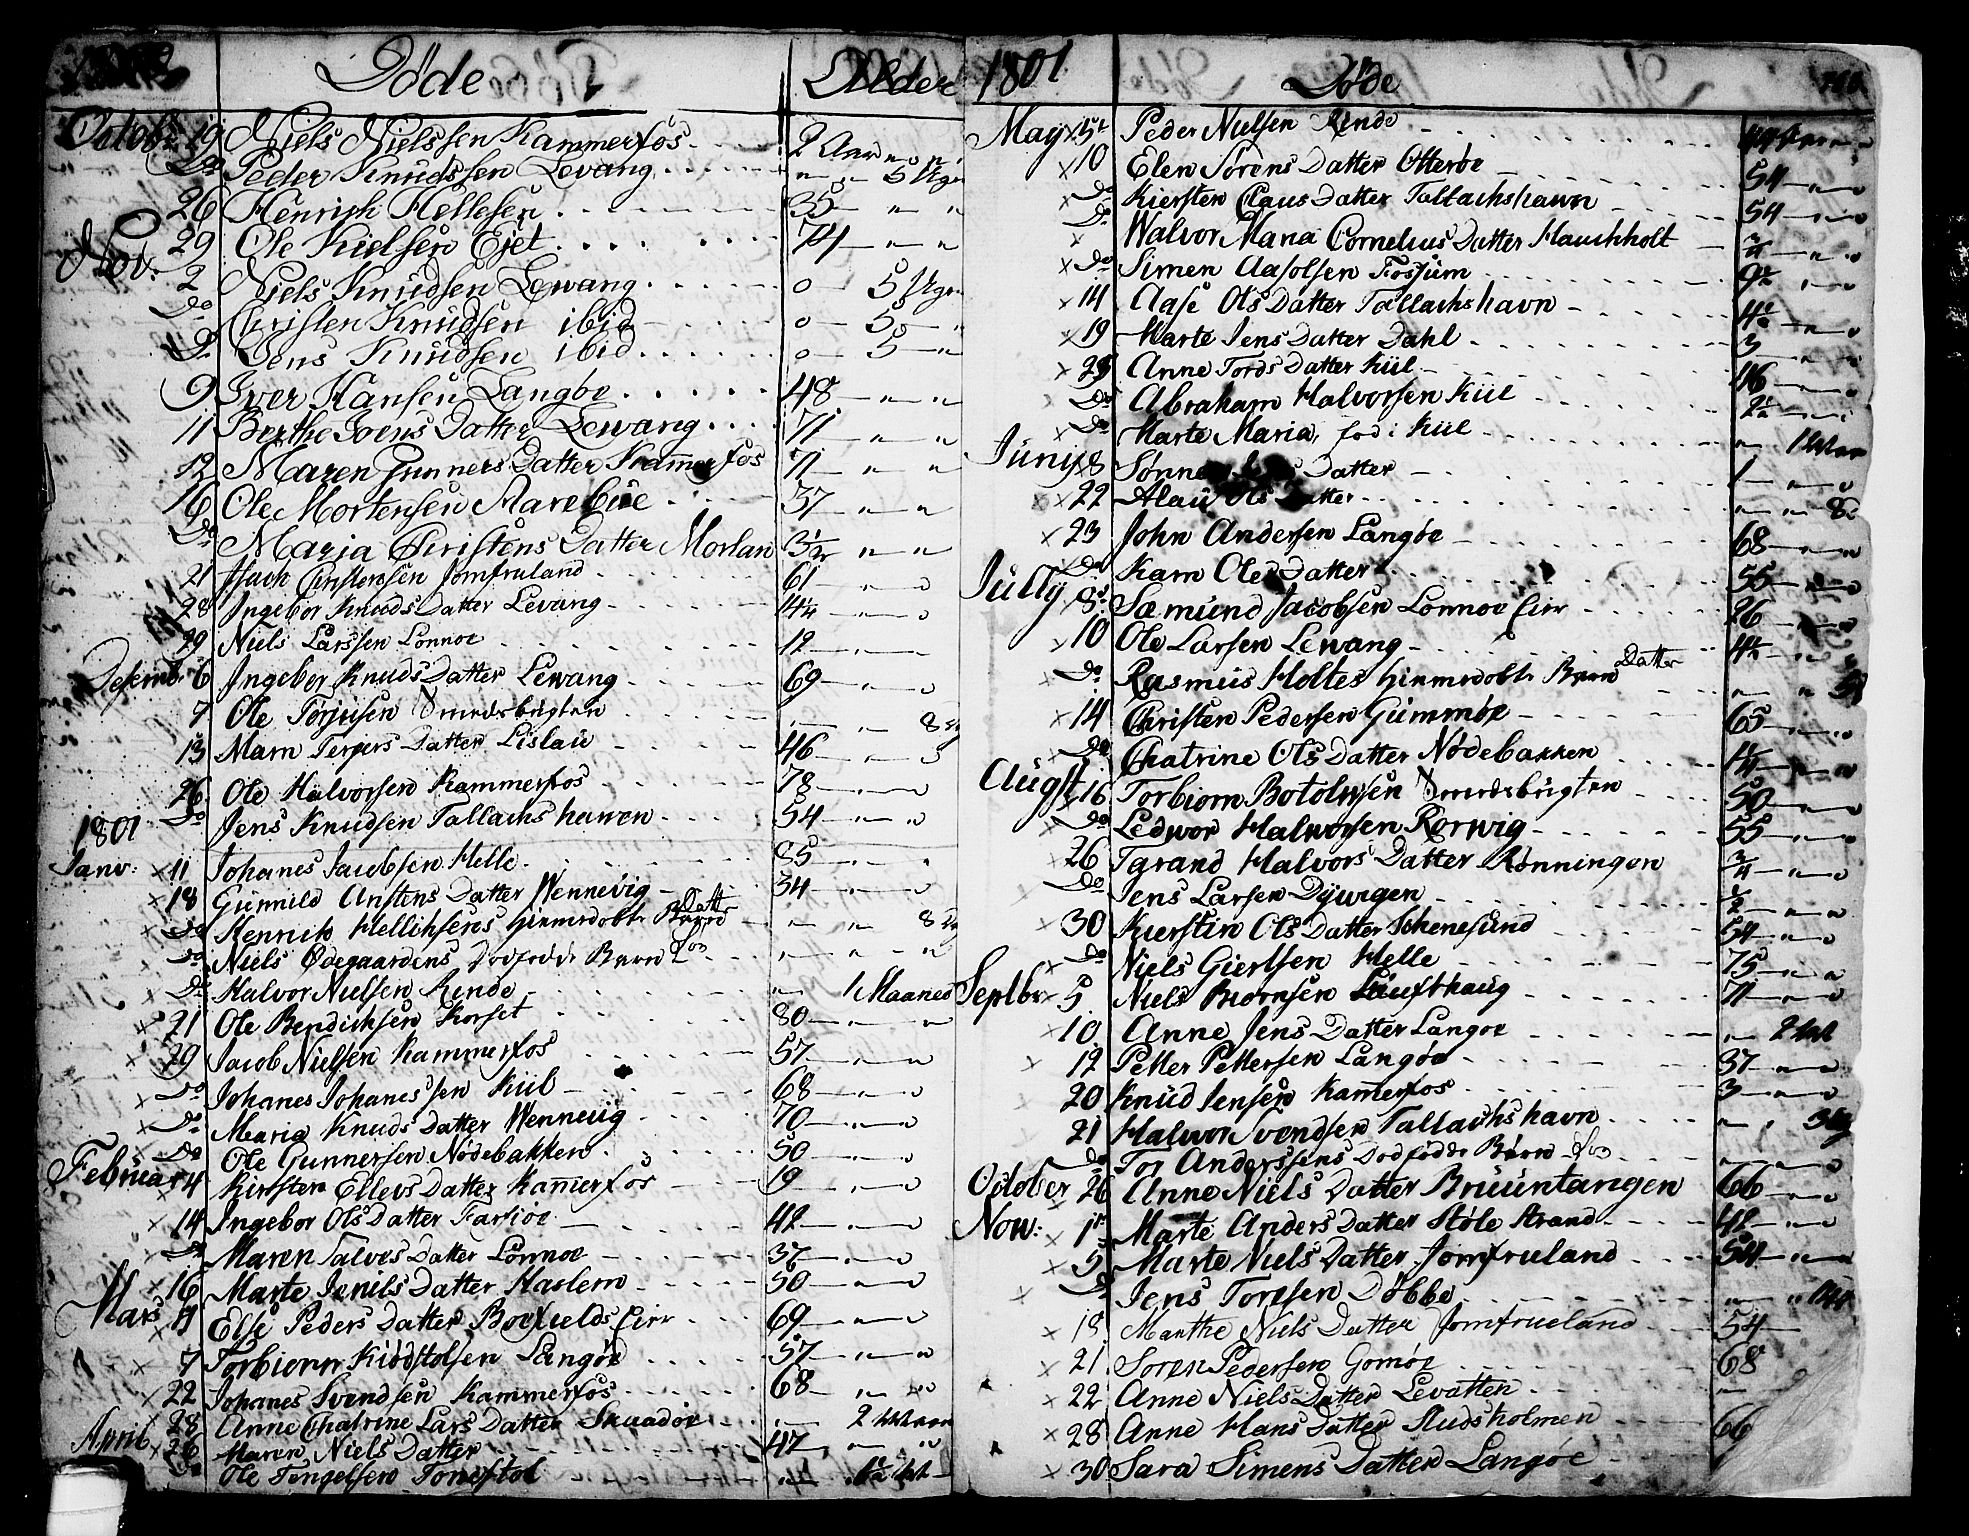 Döde Alder
Octob: 19 Niels Nielssen Kammerfos 2 Aar
Do Peder Knudssen Levang 5 Uger
26 Henrich Hellesen 35
29 Ole Kielsen Ejet 74
Nov: 2 Niels Knudsen Lewang 0 5 Uger
Do Christen Knudsen ibid 0 5
Do Jens Knudsen ibid 0 5
9 Iver Hansen Langöe 48
11 Berthe Joens Datter Lewang 71
12 Maren Gunners Datter Kam̄erfos 71
16 Ole Mortensen Marebüe 37
Do Maria Christens Datter Morlan 3½
21 Isach Christensen Jomfruland 61
28 Ingebor Knuds Datter Levang 4¼
29 Niels Larssen Lonnoe 12
Desemb: 6 Ingebor Knuds Datter Lewang 69
7 Ole Torjusen Smedsbugten 8
13 Marn Terjers Datter Lislau 46
26 Ole Halvorsen Kammerfos 78
Do Jens Knudsen Tallachshawen 54
1801
Janv: 11 Johanes Jacobsen Helle 85
18 Gunnild Anstens Datter Wennevig 34
Do Henrich Hellichsens hiemedöbte Barn Datter 8
Do Niels Ødegaardens Dödfödde Barn Søn
Do Halvor Nielsen Rende 1 Maanes
21 Ole Bendichsen Korset 80
29 Jacob Nielsen Kammerfos 57
Do Johanes Johanessen Kiil 68
Do Maria Knuds Datter Wennevig 70
Do Ole Gunnersen Nödebakken 50
Februar 4 Kirsten Ellevs Datter Kam̄erfos 19
14 Ingebor Ols Datter Farsiöe 42
Do Maren Talvs Datter Lonnoe 37
16 Marte Jenils Datter Haslem 50
Mars 4 Else Peders Datter Boefields Eier 69
7 Torbiörn Kiödstolsen Langöe 57
22 Johanes Svendsen Kammerfos 68
28 Anne Chatrine Lars Datter Skaadöe 2
April 26 Maren Niels Datter 47
Do Ole Tengelsen Tonestol
1801 Döde
May 5te Peder Nielsen Rende
10 Elen Sörens Datter Otteröe 54
Do Kiersten Claus Datter Tallachshawn 54
Do Walvor Maria Cornelius Datter Hauchholt ¾
Do Simen Aasolsen Fossum 9½
14 Aase Ols Datter Tallachshavn 4½
19 Marte Jens Datter Dahl 3
29 Anne Tords Datter Kiil 46
Do Abraham Halvorsen Kiil 2½
Do Marte Maria, föd i Kiil
Junij 8 Sönne Datter 1
22 Alau Ols Datter 8
23 John Andersen Langöe 68
Do Karn Ole Datter 55
Jully 8d: Sæmund Jacobsen Lonnoe Eier 26
10 Ole Larsen Lewang 4½
Do Rasmus Holtes hiemedöbte Barn Datter
14 Christen Pedersen Gummöe 65
Do Chatrine Ols Datter Nödebakken 1¼
Augst. 16 Torbiorn Botolwsen Smedsbugten 50
Do Ledwor Halworsen Rorwig 55
26 Tarand Halvors Datter Rönningen ¾
Do Jens Larsen Dywigen ½
30 Kierstin Ols Datter Schenesund 54
Do Niels Gierlsen Helle 75
Septbr 5 Niels Biornsen Laufthaug 71
10 Anne Jens Datter Langoe 2
12 Petter Pettersen Langöe 37
20 Knud Jensen Kam̄erfos 3
21 Halwor Svendsen Tallachshavn
Do Tor Anderssens Dödfödde Barn Søn
October 26 Anne Niels Datter Bruuntangen 66
Now: 1te Marte Anders Datter Stöle Strand 42
5 Marte Niels Datter Jomfrueland 54
Do Jens Toresen Döbbe
18 Marthe Niels Datter Jomfrueland 54
21 Soren Pedersen Gomöe 68
22 Anne Niels Datter Levatten
28 Anne Hans Datter Studsholmen 66
30 Sara Simens Datter Langöe